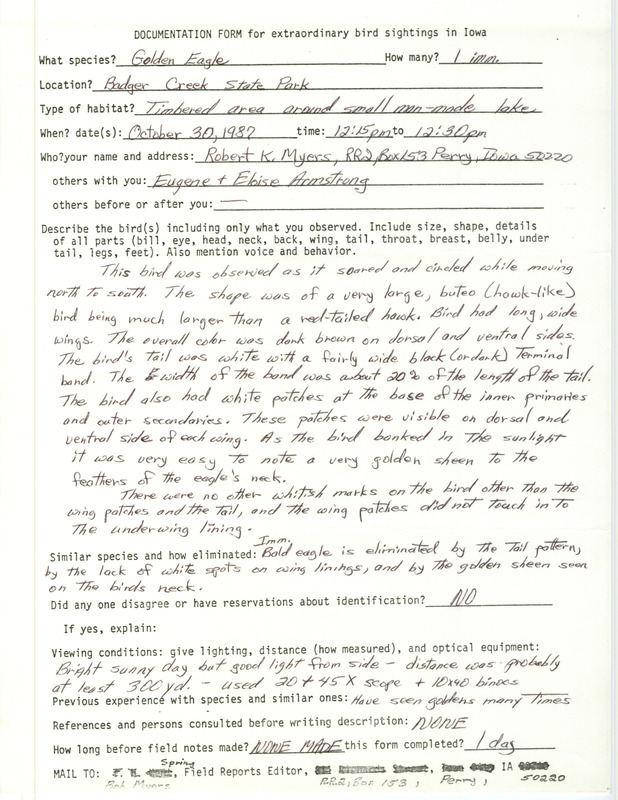 DOCUMENTATION FORM for extraordinary bird sightings in Iowa
What species? Golden Eagle How many? 1 imm.
Location? Badger Creek State Park
Type of habitat? Timbered area around small man-made lake
When? date(s): October 30, 1987 time: 12:15pm to 12:30pm
Who?your name and address: Robert K. Myers, RR2, Box 153 Perry, Iowa 50220
others with you: Eugene + Eloise Armstrong
others before or after you: —
Describe the bird(s) including only what you observed. Include size, shape, details
of all parts (bill, eye, head, neck, back, wing, tail, throat, breast, belly, under
tail, legs, feet). Also mention voice and behavior.
This bird was observed as it soared and circled while moving
north to south. The shape was of a very large, buteo (hawk-like)
bird being much larger than a red-tailed hawk. Bird had long, wide
wings. The overall color was dark brown on dorsal and ventral sides.
The bird's tail was white with a fairly wide black (or dark) Terminal
band. The width of the band was about 20% of the length of the tail.
The bird also had white patches at the base of the inner primaries
and outer secondaries. These patches were visible on dorsal and
ventral side of each wing. As the bird banked in the sunlight
it was very easy to note a very golden sheen to the
feathers of the eagle's neck.
There were no other whitish marks on the bird other than the
wing patches and the tail, and the wing patches did not touch in to
The underwing lining.
Similar species and how eliminated: Imm. Bald eagle is eliminated by the Tail pattern,
by the lack of white spots on wing linings, and by the golden sheen seen
on the birds neck.
Did any one disagree or have reservations about identification? NO
If yes, explain:
Viewing conditions: give lighting, distance (how measured), and optical equipment:
Bright sunny day but good light from side - distance was probably
at least 300 yd. - used 20 + 45X scope + 10x40 binocs
Previous experience with species and similar ones: Have seen goldens many Times
References and persons consulted before writing description: NONE
How long before field notes made? NONE MADE this form completed? 1 day
MAIL TO: Spring Field Reports Editor, IA
Bob Myers R.R.2, Box 153, Perry, 50220